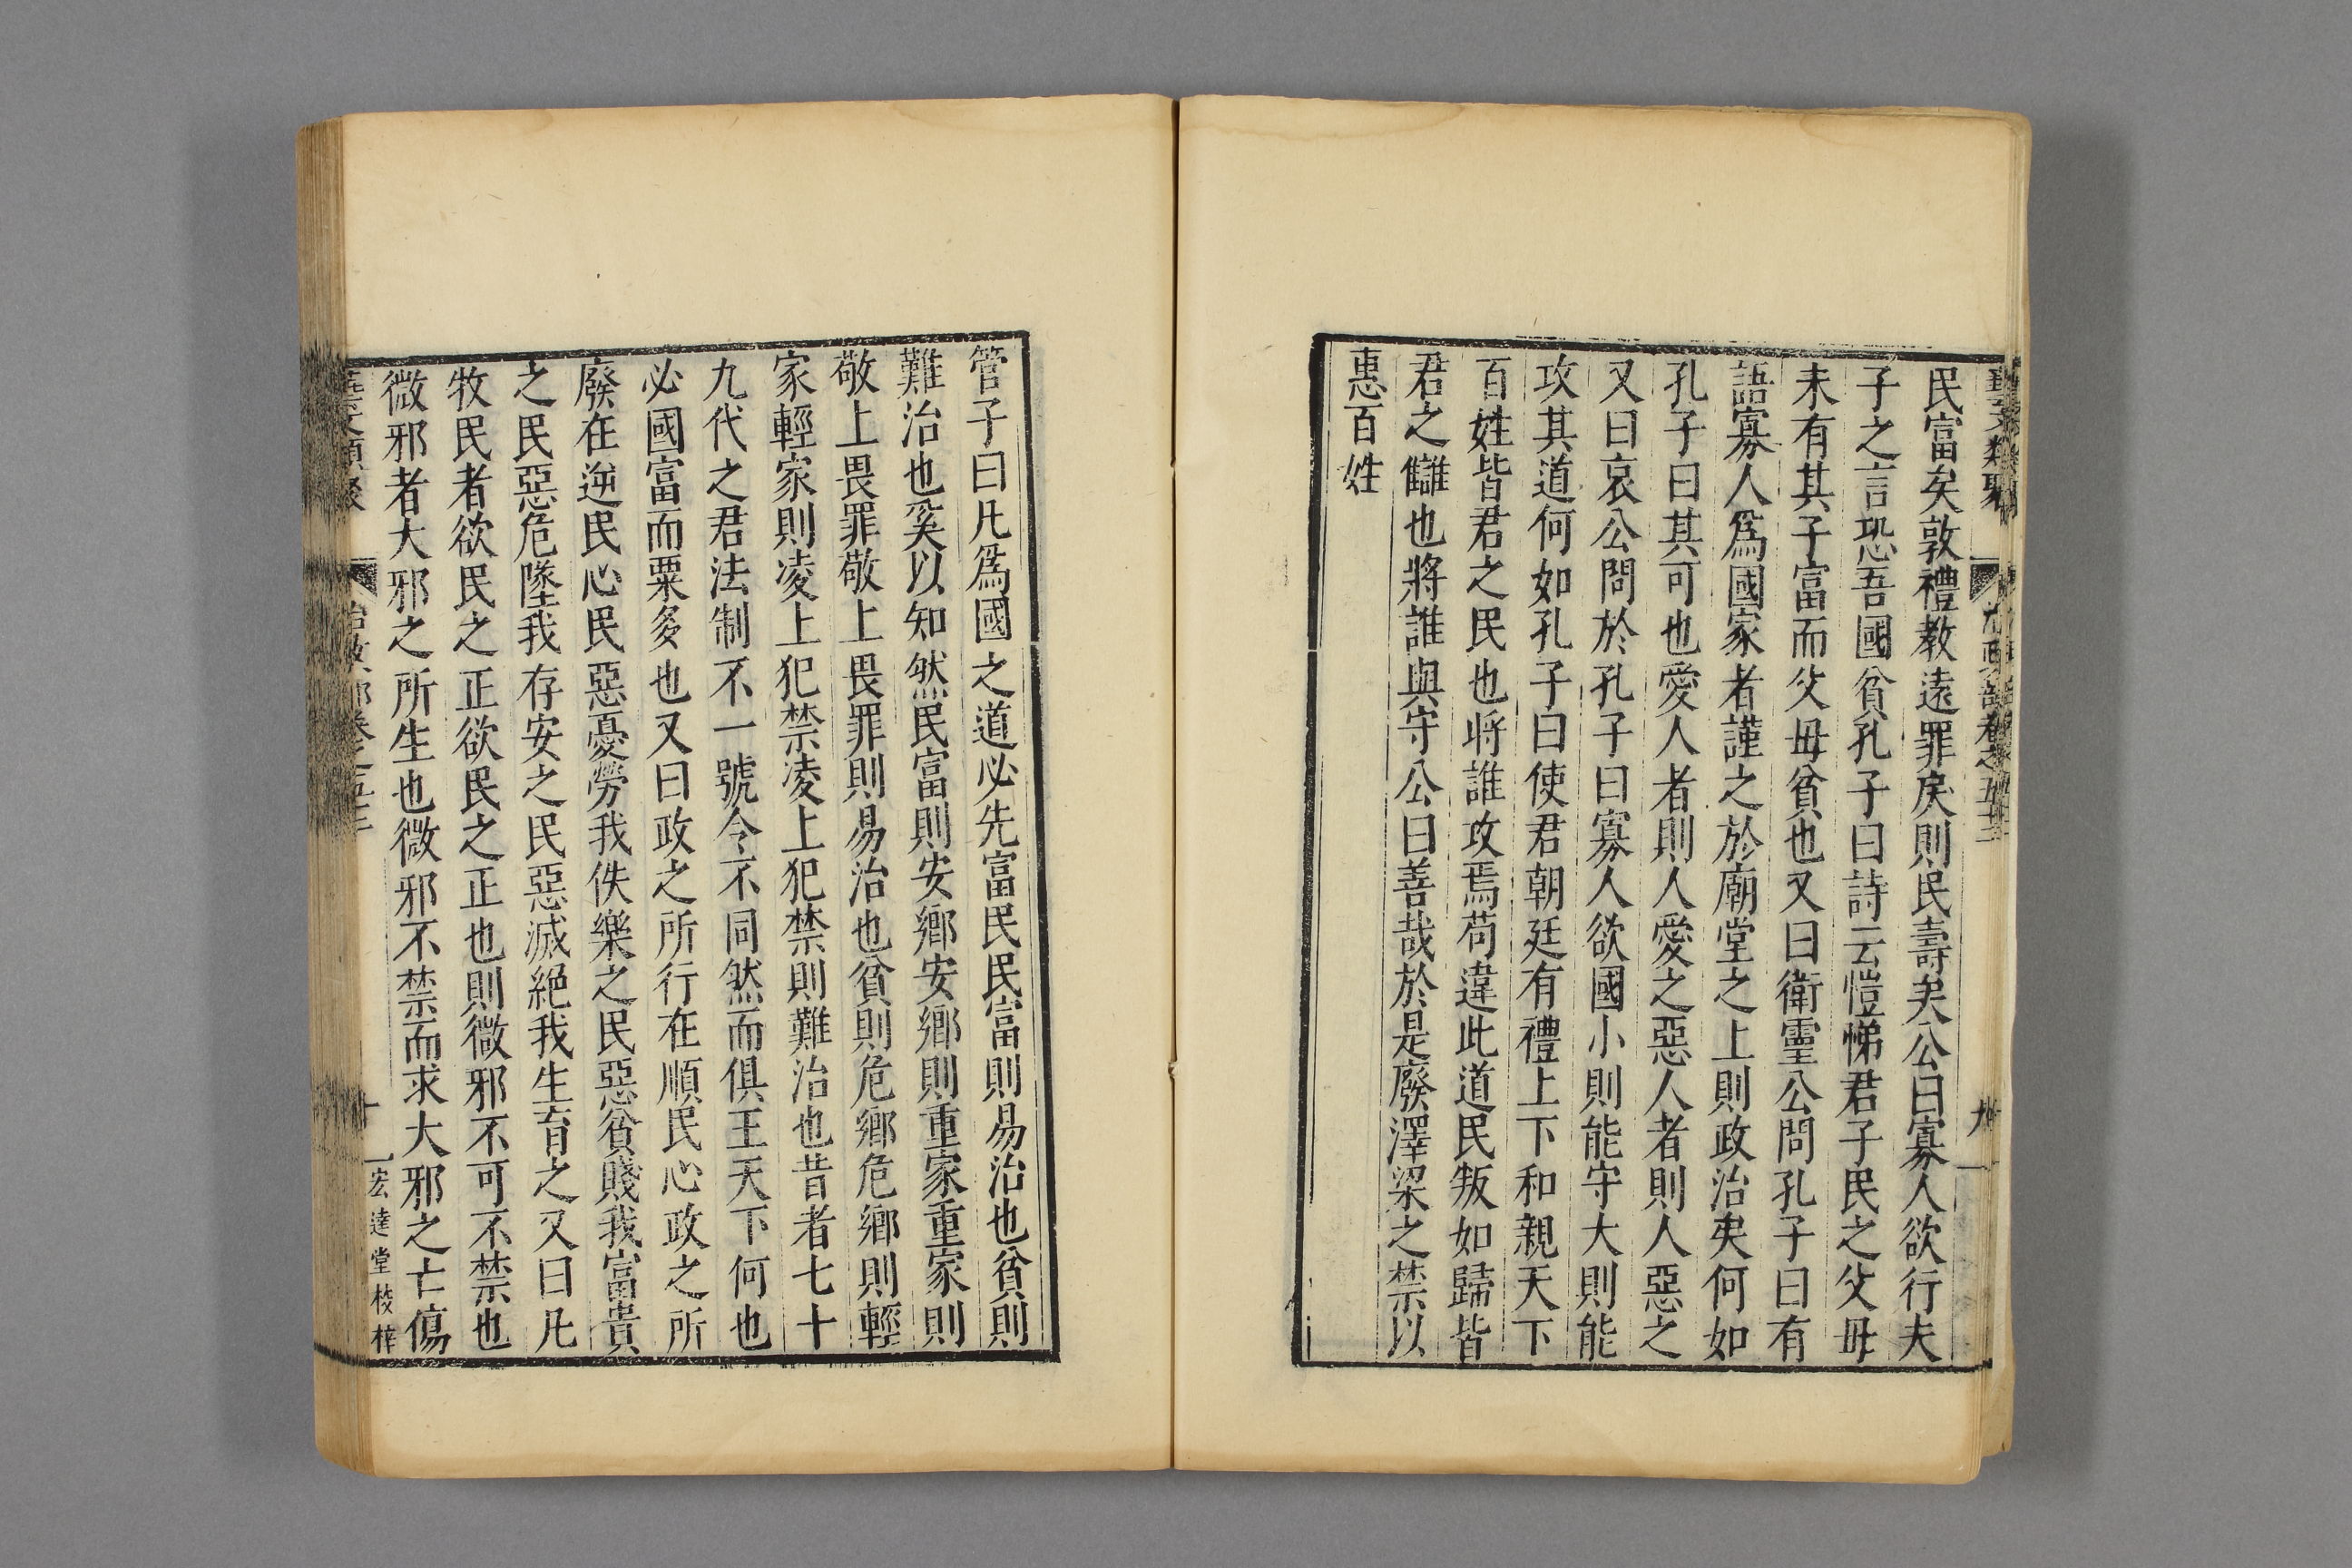 民富矣敦禮教遠罪戾則民壽矣公曰寡人欲行夫
子之言恐吾國貧孔子曰詩云愷悌君子民之父毋
未有其子富而父毋貧也又曰衛靈公問孔子曰有
語寡人爲國家者謹之於廟堂之上則政治矣何如
孔子曰其可也愛人者則人愛之惡人者則人惡之
又曰哀公問於孔子曰寡人欲國小則能守大則能
攻其道何如孔子曰使君朝廷有禮上下和親天下
百姓皆君之民也將誰攻焉苟違此道民叛如歸皆
君之讎也將誰與守公曰善哉於是廢澤梁之禁以
惠百姓
管子曰凡爲國之道必先富民民富則易治也貧則
難治也奚以知然民富則安鄉安鄉則重家重家則
敬上畏罪敬上畏罪則易治也貧則危鄉危鄉則輕
家輕家則凌上犯禁凌上犯禁則難治也昔者七十
九代之君法制不一號令不同然而俱王天下何也
必國富而粟多也又曰政之所行在順民心政之所
廢在逆民心民惡憂勞我佚樂之民惡貧賤我富貴
之民惡危墜我存安之民惡滅絕我生育之又曰凡
牧民者欲民之正欲民之正也則微邪不可不禁也
微邪者大邪之所生也微邪不禁而求大邪之亡傷
宏達堂校梓